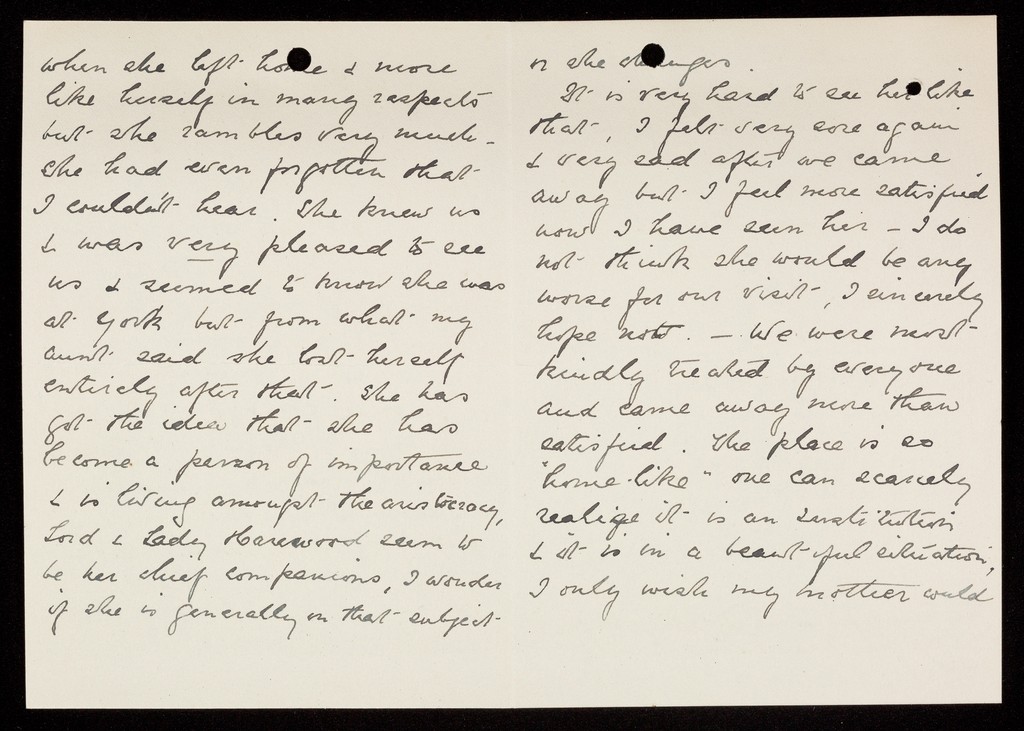 when she left home & more
like herself in many respects
but she rambles very much -
she had even forgotten that
I couldn't hear. She knew us
& was very pleased to see
us & seemed to know she was
at York but from what my
aunt said she lost herself
entirely after that. She has
got the idea that she has
become a person of importance
& is living amongst the aristocracy,
Lord & Lady Harewood seem to
be her chief companions, I wonder
if she is generally on that subject
or she changes.
It is very hard to see her like
that, I felt very sore again
& very sad after we came
away but I feel more satisfied
now I have seen her - I do
not think she would be any
worse for our visit, I sincerely
hope not. - We were most
kindly treated by everyone
and came away more than
satisfied. The place is so
"home-like" one can scarcely
realize it is an institution
& it is in a beautiful situation,
I only wish my mother could